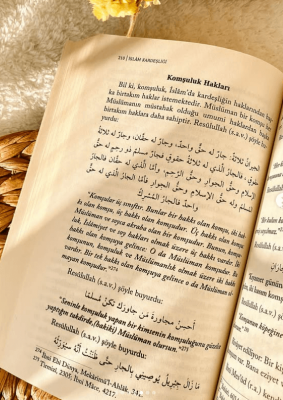 210 | İSLÂM KARDEŞLİĞİ
Komşuluk Hakları
Bil ki, komşuluk, İslâm'da kardeşliğin haklarından baş-
ka birtakım haklar istemektedir. Müslüman bir komşu her
Müslümanın müstahak olduğu umumî haklardan başka
birtakım haklara daha sahiptir. Resûlullah (s.a.v.) şöyle bu-
yurdu:
الجيران ثلاثة: جار له حق واحد، وجار له حقان، وجار له ثلاثة
حقوق، فالجار الذي له ثلاثة حقوق فجار مسلم ذو رحم له حق
الجوار وحق الإسلام وحق الرحم، وأما الجار الذي له حقان فجار
مسلم له حق الإسلام وحق الجوار، وأما الجار الذي له حق
واحد فالجار المشرك
"Komşular üç sınıftır. Bunlar bir hakkı olan komşu, iki hak-
kı olan komşu, üç hakkı olan komşudur. Üç hakkı olan komşu
Müslüman ve soyca akraba olan bir komşudur. Bunun, komşu-
luk, İslamiyet ve soy hakları olmak üzere üç hakkı vardır. İki
hakkı olan komşuya gelince o da Müslüman komşudur. Bu
komşunun, komşuluk ve Müslümanlık olmak üzere iki hakkı
vardır. Bir tek hakkı olan komşuya gelince o da Müslüman ol-
mayan komşudur."²⁷⁴
Resûlullah (s.a.v.) şöyle buyurdu:
أحسن مجاورة من جاورك تكن مسلما
"Seninle komşuluk yapan bir kimsenin komşuluğunu güzelce
yaptığın takdirde,(hakikî) Müslüman olursun."
Resûlullah (s.a.v.) şöyle buyurdu:
ما زال جبريل يوصيني بالجار حتى ظننت أنه سيورثه
274 İbni Ebi Dünya, Mekârimu'l-Ahlâk,
Tirmizî, 2305; İbni Mâce, 4217.